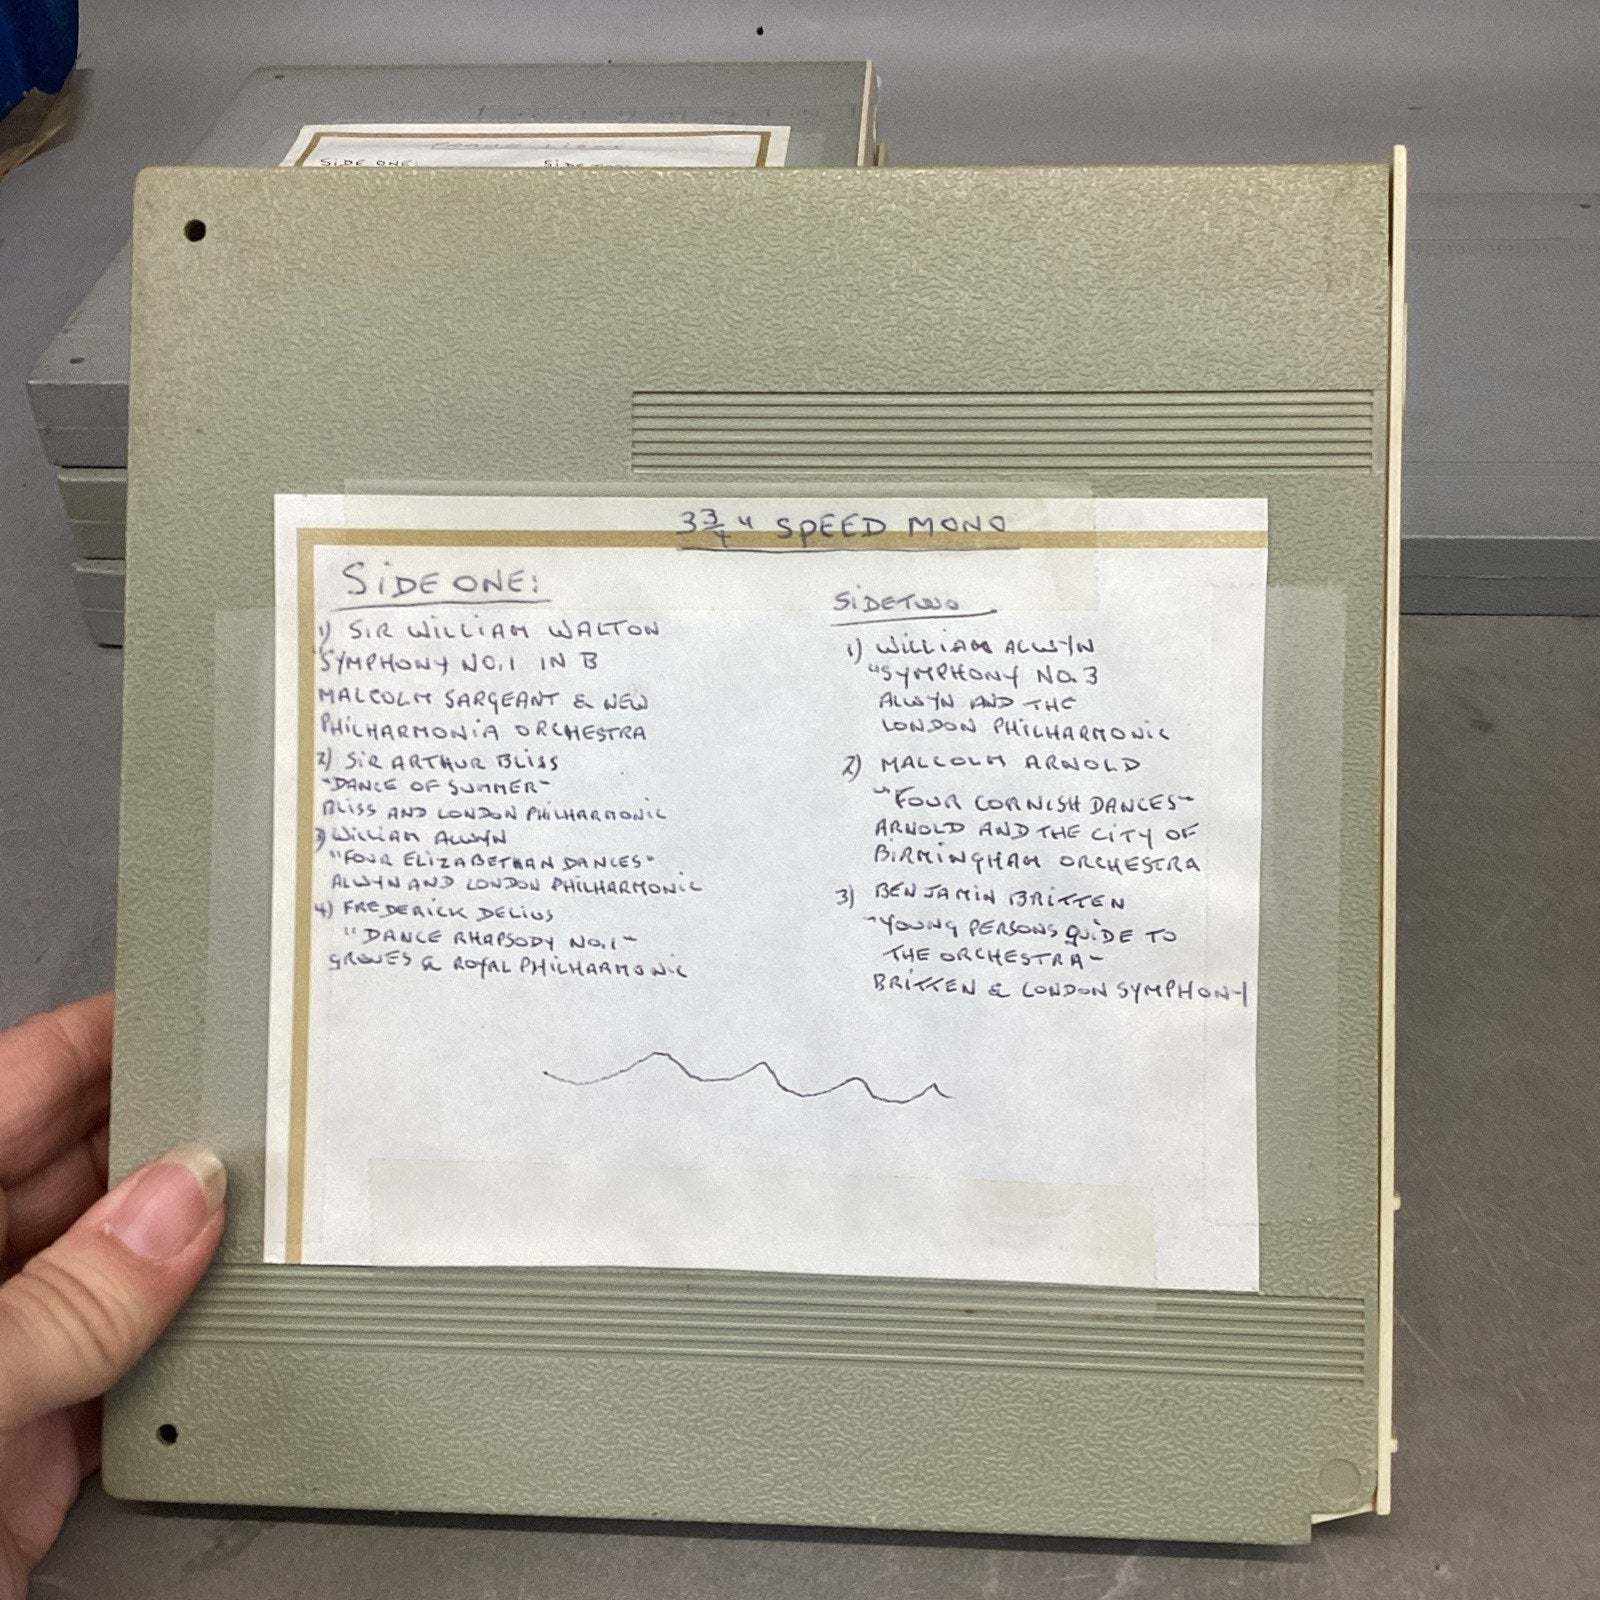 SIDE ONE:
3 3/4" SPEED MONO
SIDE ONE:
1) SIR WILLIAM WALTON
"SYMPHONY NO.1 IN B
MALCOLM SARGEANT & NEW
PHILHARMONIA ORCHESTRA
2) SIR ARTHUR BLISS
"DANCE OF SUMMER"
BLISS AND LONDON PHILHARMONIC
3) WILLIAM ALWYN
"FOUR ELIZABETHAN DANCES"
ALWYN AND LONDON PHILHARMONIC
4) FREDERICK DELIUS
"DANCE RHAPSODY NO.1"
GROVES & ROYAL PHILHARMONIC
SIDE TWO
1) WILLIAM ALWYN
"SYMPHONY NO.3
ALWYN AND THE
LONDON PHILHARMONIC
2) MALCOLM ARNOLD
"FOUR CORNISH DANCES"
ARNOLD AND THE CITY OF
BIRMINGHAM ORCHESTRA
3) BENJAMIN BRITTEN
"YOUNG PERSONS GUIDE TO
THE ORCHESTRA"
BRITTEN & LONDON SYMPHONY